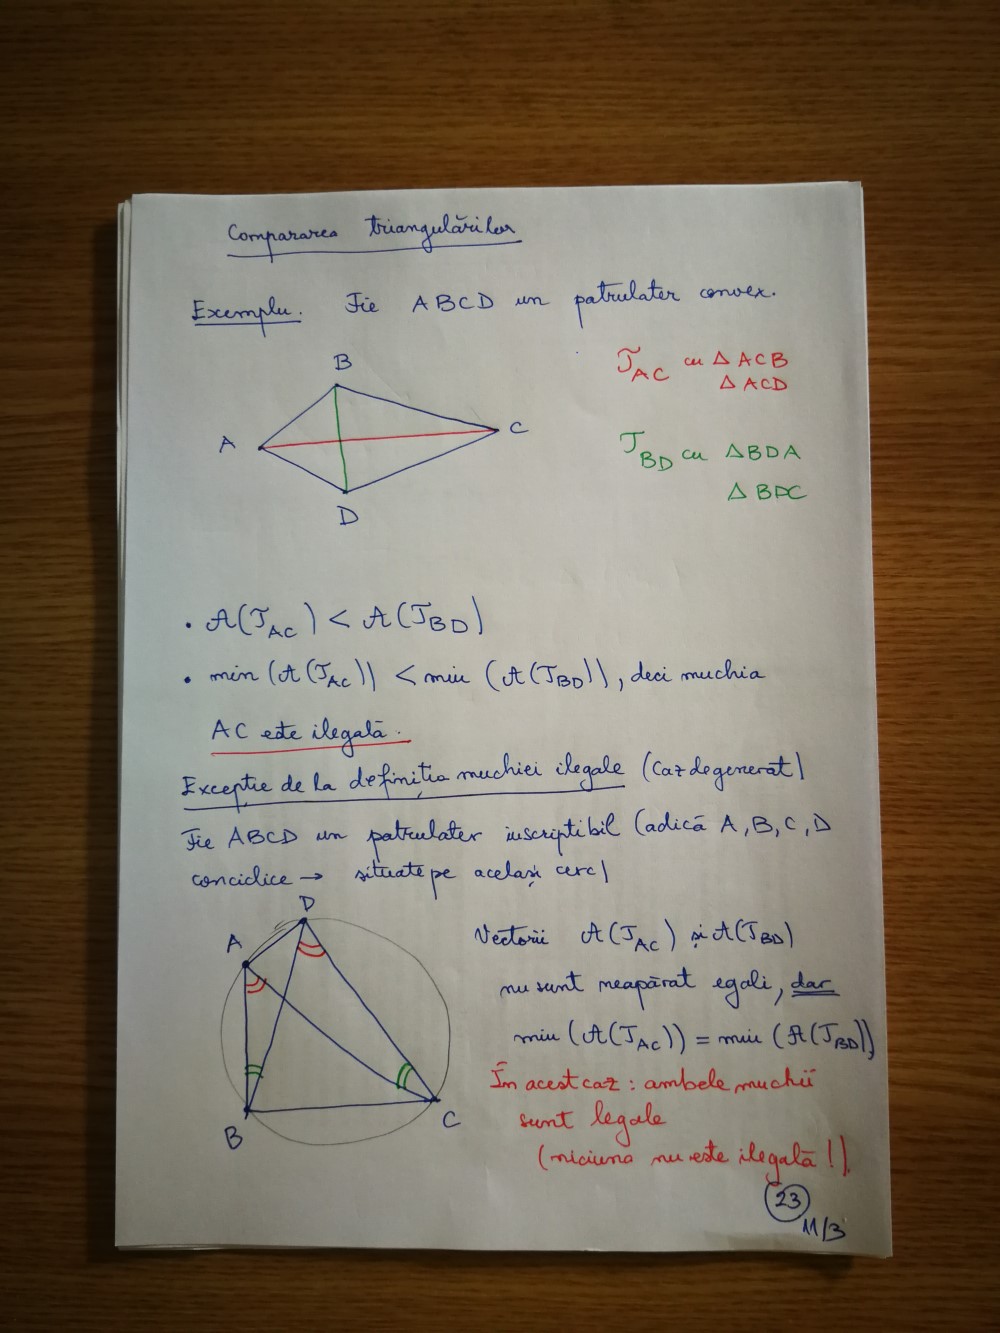 Compararea triangulărilor
Exemplu. Fie ABCD un patrulater convex.
B
A
C
D
T_AC cu △ ACB
△ ACD
T_BD cu △BDA
△ BDC
• A(T_AC) < A(T_BD)
• min (A(T_AC)) < min (A(T_BD)), deci muchia
AC este ilegală.
Excepție de la definiția muchiei ilegale (Caz degenerat)
Fie ABCD un patrulater inscriptibil (adică A, B, C, D
conciclice → situate pe același cerc)
D
A
B
C
Vectorii A(T_AC) și A(T_BD)
nu sunt neapărat egali, dar
min (A(T_AC)) = min (A(T_BD)),
În acest caz : ambele muchii
sunt legale
(niciuna nu este ilegală !).
23
11/3